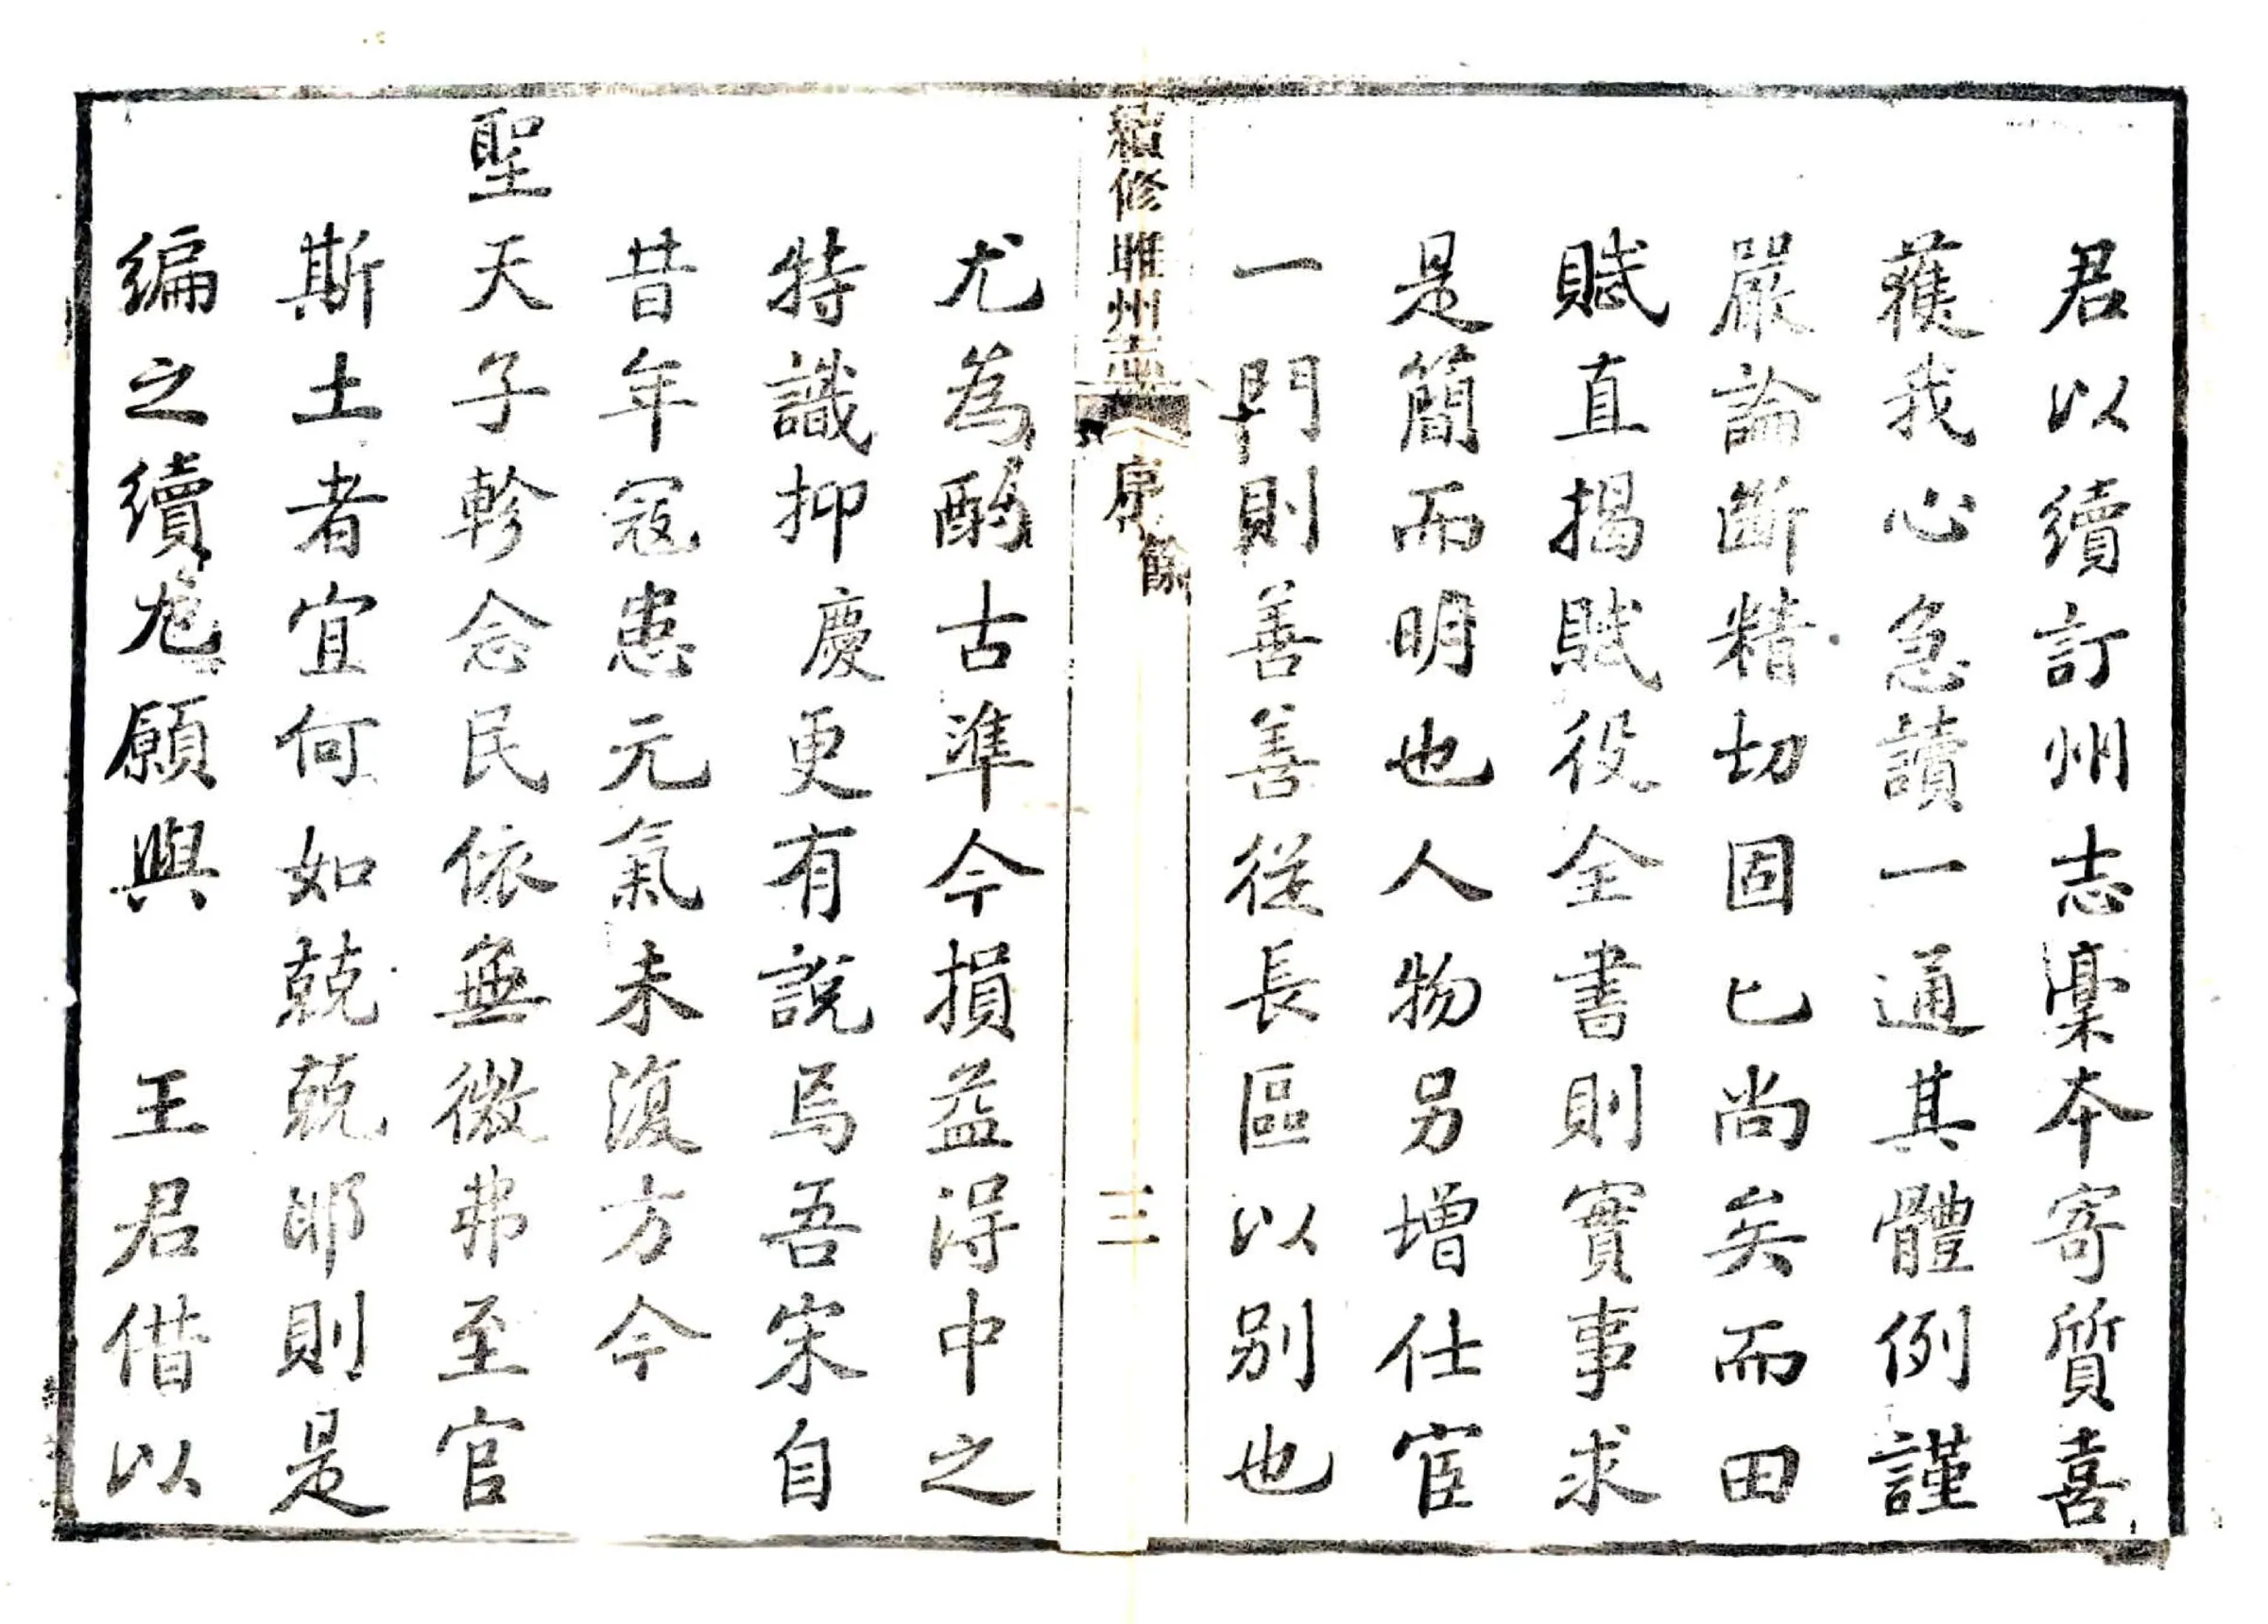 君以續訂州志稾本寄質喜
獲我心急讀一通其體例謹
嚴論斷精切固已尚矣而田
賦直揭賦役全書則實事求
是簡而明也人物另增仕宦
一門則善善從長區以別也
續修睢州志
序
餘
三
尤為酌古準今損益得中之
特識抑慶更有說焉吾宋自
昔年寇患元氣未復方今
聖天子軫念民依無微弗至官
斯土者宜何如兢兢耶則是
編之續尤願與 王君偕以